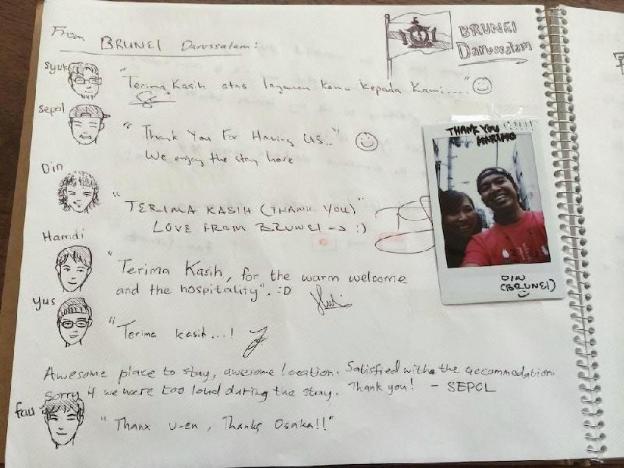 From BRUNEI Darussalam:
BRUNEI
Darussalam
Syuk
"Terima Kasih atas layanan kamu kepada kami...."
Sepol
"Thank You For Having Us.."
We enjoy the stay here
Din
"TERIMA KASIH (THANK YOU)"
LOVE FROM BRUNEI → :)
Hamdi
"Terima Kasih, for the warm welcome
and the hospitality". :D
Yus
"Terima kasih...!
Awesome place to stay, awesome location. Satisfied with the accommodation
Sorry if we were too loud during the stay. Thank you! - SEPOL
"Thanx u-en, Thanks Osaka!!"
THANK YOU
DIN
(BRUNEI)